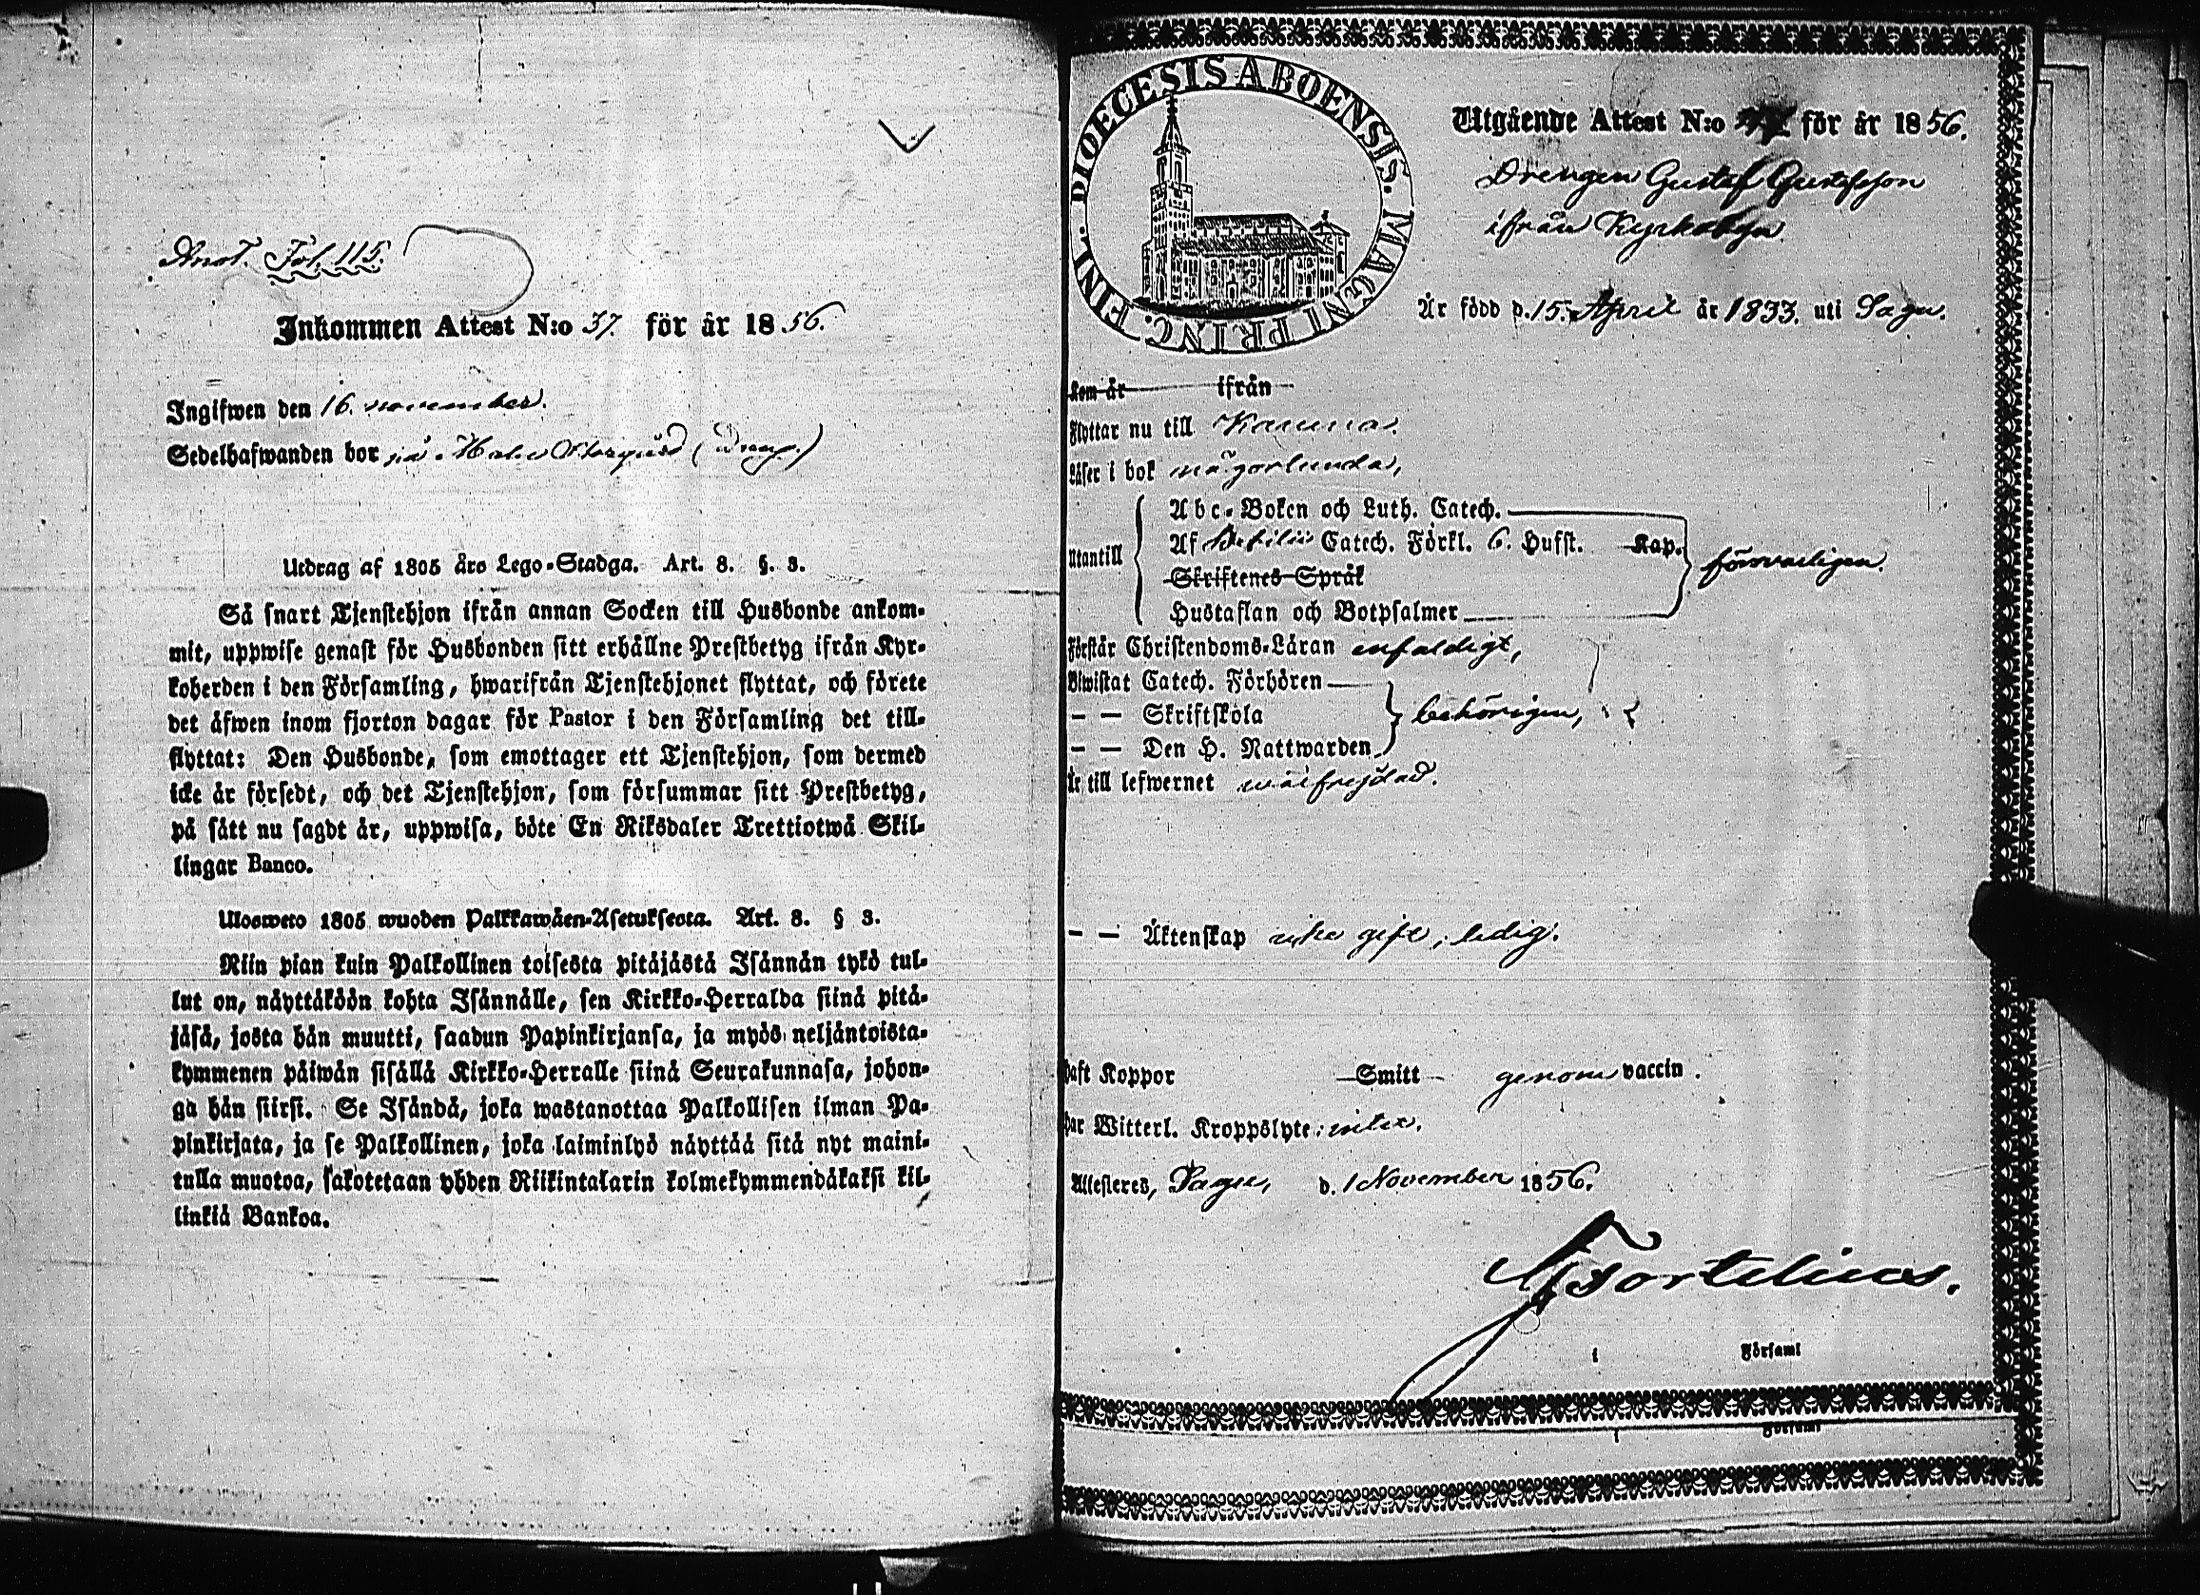 Anot. Fol. 115.
Inkommen Attest N:o 37. för år 1856.
Ingifwen den 16. november.
Sedelhafwanden bor på Storgård (Dreng.)
Utdrag af 1805 års Lego-Stadga. Art. 8. §. 3.
Så snart Tjenstehjon ifrån annan Socken till Husbonde ankom-
mit, uppwise genast för Husbonden sitt erhållne Prestbetyg ifrån Kyr-
koherden i den Församling, hwarifrån Tjenstehjonet flyttat, och förete
det äfwen inom fjorton dagar för Pastor i den Församling det till-
flyttat: Den Husbonde, som emottager ett Tjenstehjon, som dermed
icke är försedt, och det Tjenstehjon, som försummar sitt Prestbetyg,
på sätt nu sagdt är, uppwisa, böte En Riksdaler Trettiotwå Skil-
lingar Banco.
Ulosweto 1805 wuoden Palkkawäen-Asetuksesta. Art. 8. § 3.
Niin pian kuin Palkollinen toisesta pitäjästä Isännän tykö tul-
lut on, näyttäköön kohta Isännälle, sen Kirkko-Herralda siinä pitä-
jäsä, josta hän muutti, saadun Papinkirjansa, ja myös neljäntoista-
kymmenen päiwän sisällä Kirkko-Herralle siinä Seurakunnasa, johon-
ga hän siirsi. Se Isändä, joka wastanottaa Palkollisen ilman Pa-
pinkirjata, ja se Palkollinen, joka laiminlyö näyttää sitä nyt maini-
tulla muotoa, sakotetaan yhden Riikintalarin kolmekymmendäkaksi kil-
linkiä Bankoa.
DIOECESIS ABOENSIS. MAGNI PRINC. FINL.
Utgående Attest N:o för år 1856.
Drengen Gustaf Gustafsson
ifrån Kyrkobyn
Är född d. 15. April år 1833. uti Sagu.
Kom år ifrån
Flyttar nu till Karuna.
Läser i bok någorlunda,
Utantill
Abc-Boken och Luth. Catech.
Af Catech. Förkl. 6. Hufst. Kap.
Skriftenes Språk
försvarligen.
Hustaflan och Botpsalmer
Förstår Christendoms-Läran enfaldigt,
Biwistat Catech. Förhören
— — Skriftskola
behörigen,
— — Den H. Nattwarden
Är till lefwernet wälfrejdad.
— — Äktenskap icke gift, ledig.
haft Koppor Smitt genom vaccin.
har Witterl. Kroppslyte: intet.
Attesteres, Sagu, d. 1 November 1856.
Fortelius.
i Församl
i Församl